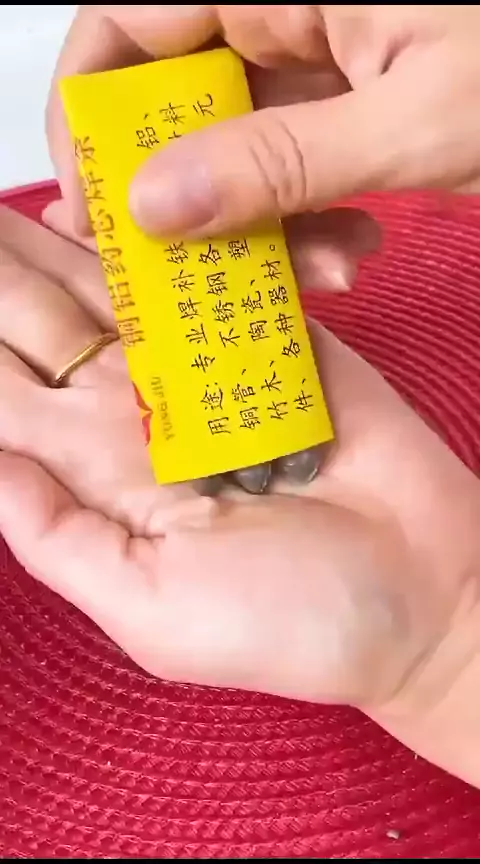 铜铝药芯焊条
用途:专业焊补铁 铝、
铜管、不锈钢各 料
竹木、陶瓷、塑 元
件、各种器材。